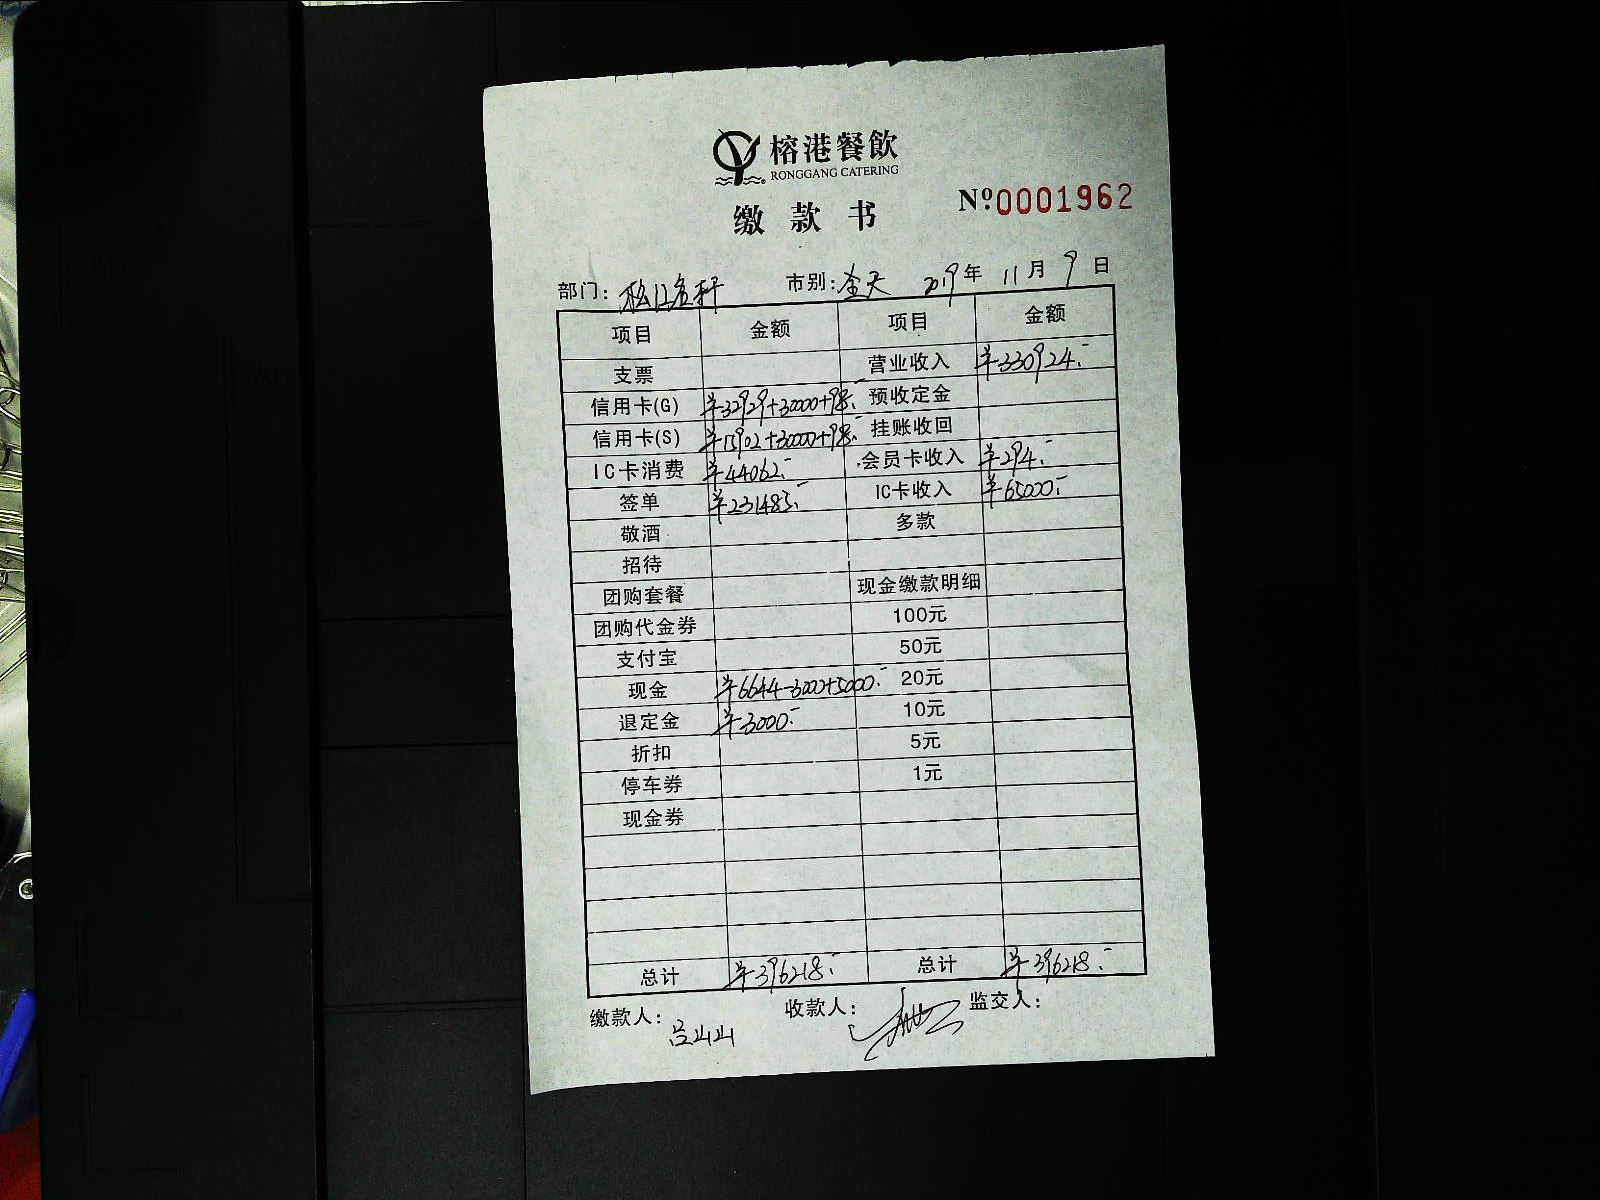 榕港餐飲
RONGGANG CATERING
缴款书
Nº0001962
部门：松江名轩 市别：全天 2019年11月9日
项目 金额 项目 金额
支票 营业收入 ¥330924.-
信用卡(G) ¥32929+30000+98.- 预收定金
信用卡(S) ¥15902+30000+98.- 挂账收回
IC卡消费 ¥44062.- 会员卡收入 ¥294.-
签单 ¥231485.- IC卡收入 ¥65000.-
敬酒 多款
招待
团购套餐 现金缴款明细
团购代金券 100元
支付宝 50元
现金 ¥6644-3000+5000.- 20元
退定金 ¥3000.- 10元
折扣 5元
停车券 1元
现金券
总计 ¥396218.- 总计 ¥396218.-
缴款人：吕山山 收款人： 监交人：